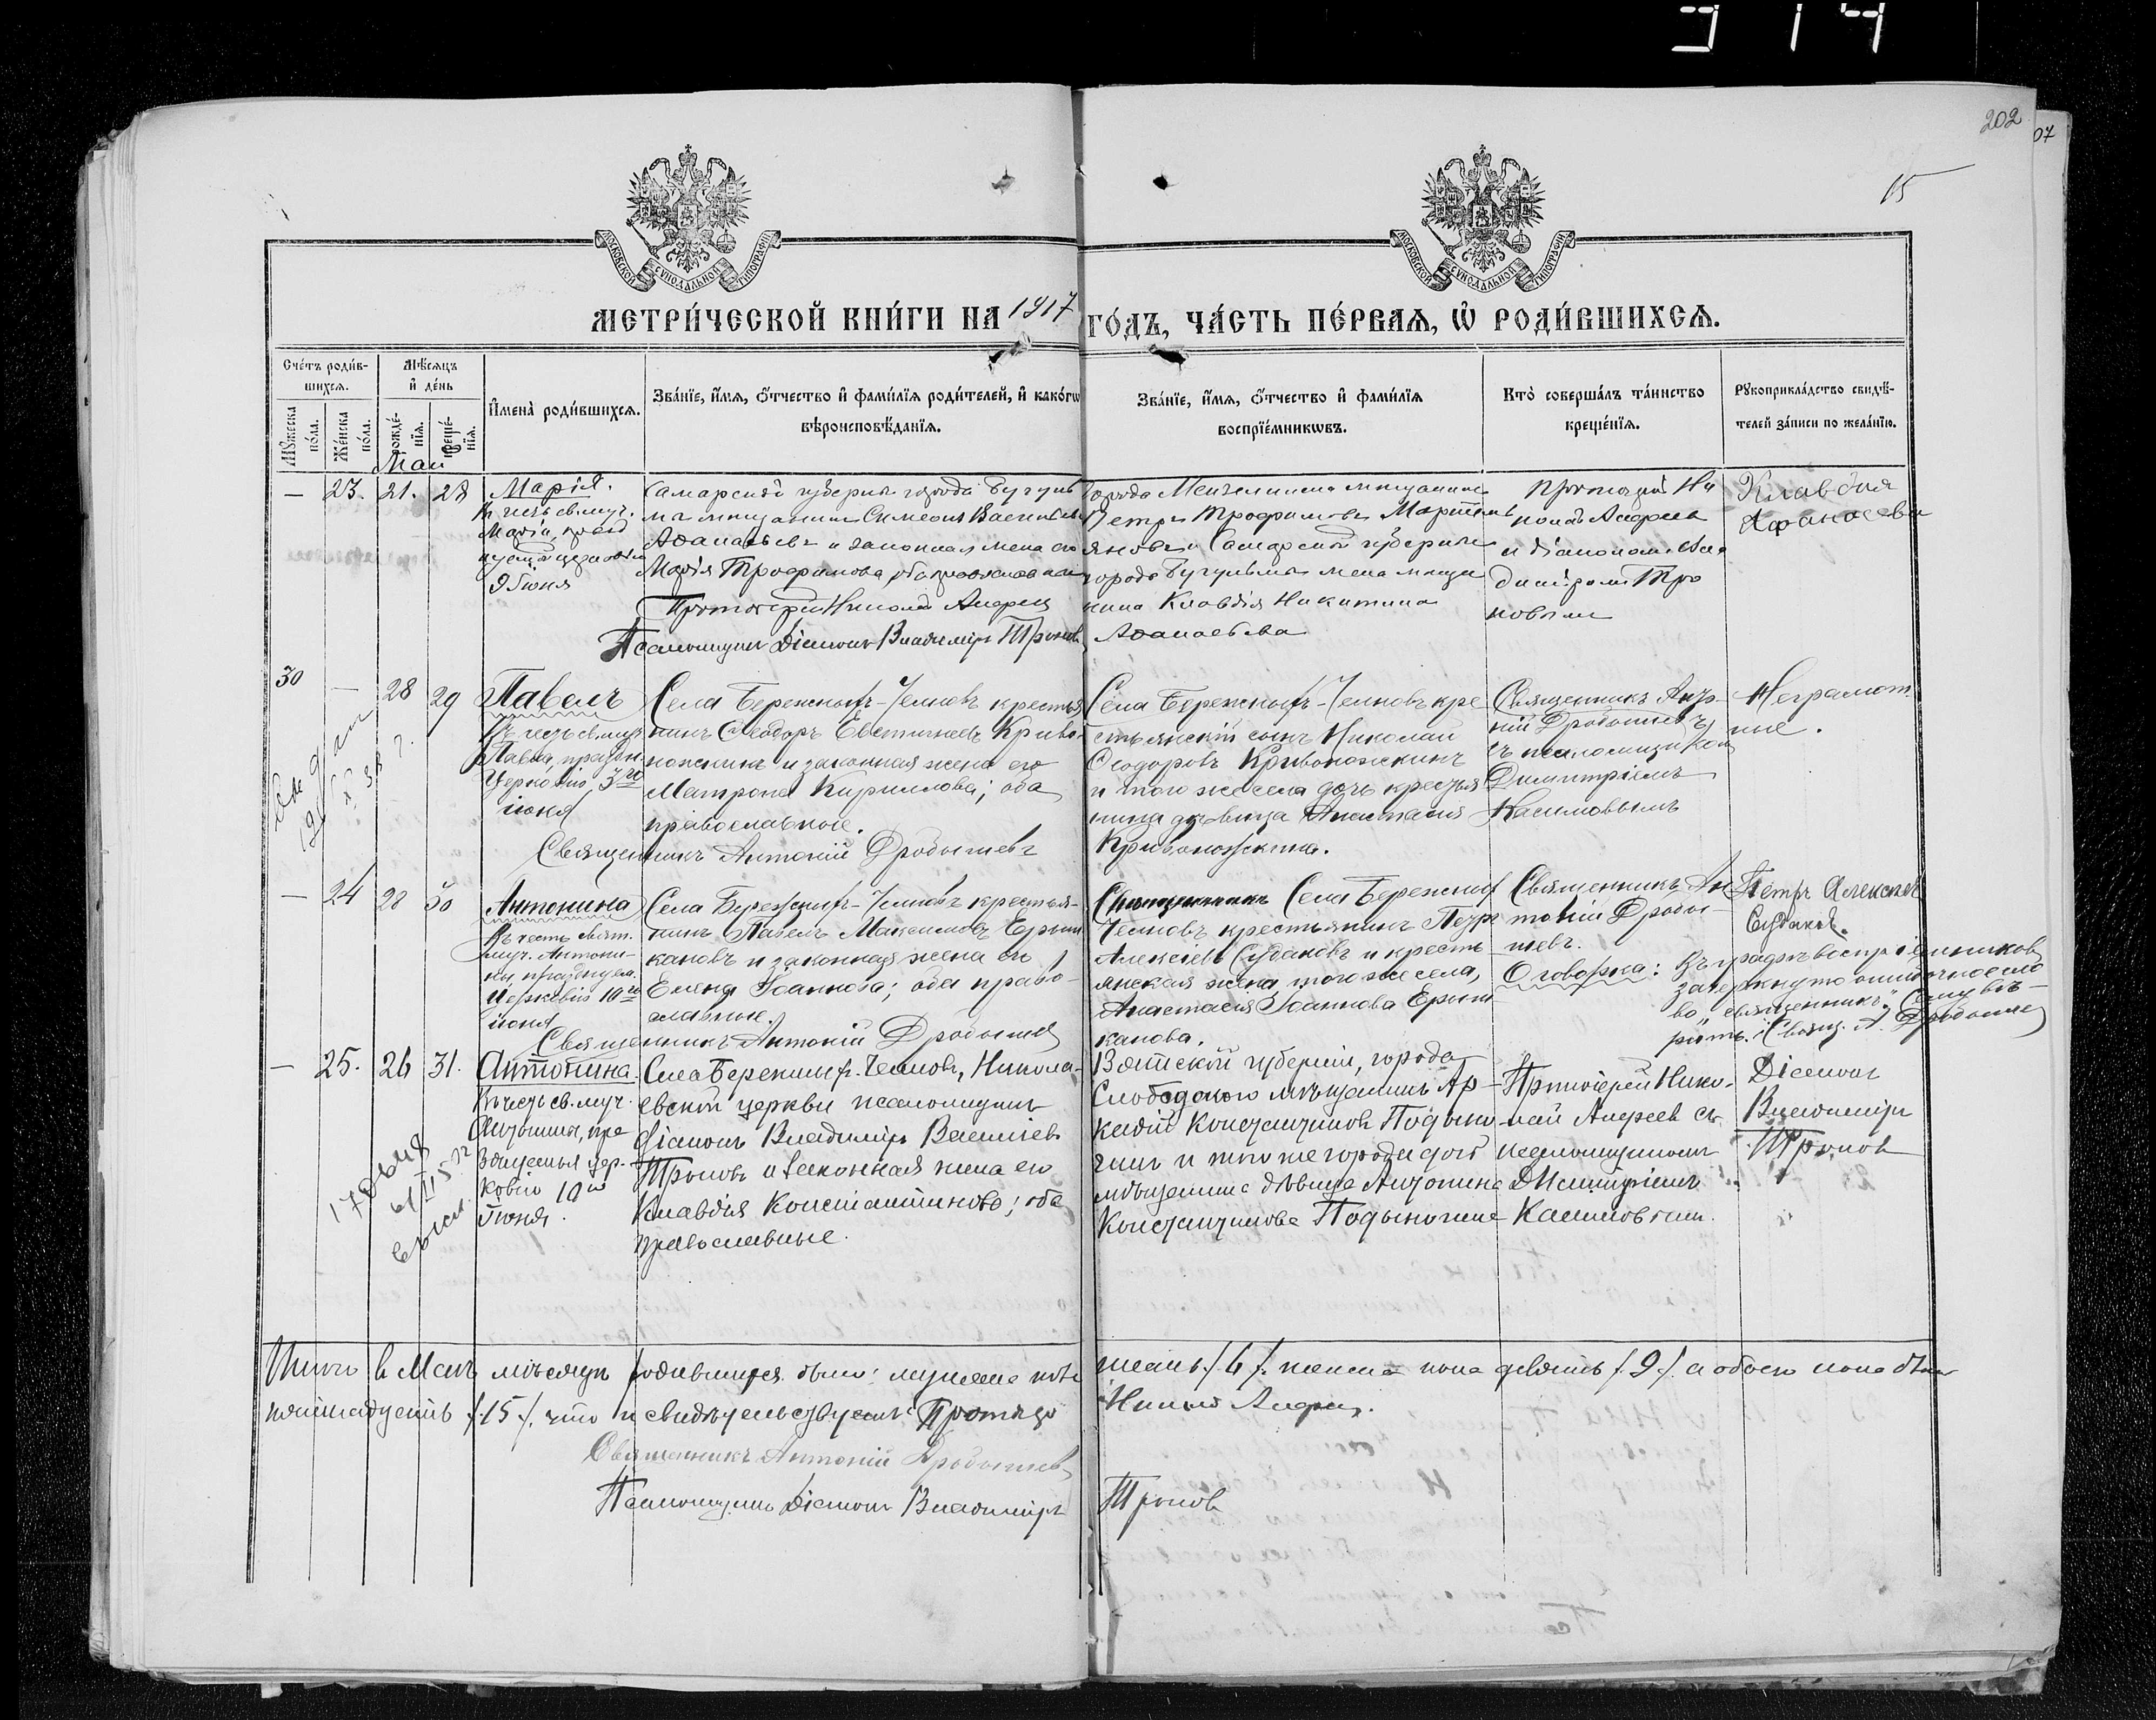 202
07
15
МОСКОВСКОЙ СѴНОДАЛЬНОЙ ТИПОГРАФІИ
МОСКОВСКОЙ СѴНОДАЛЬНОЙ ТИПОГРАФІИ
МЕТРИ́ЧЕСКОЙ КНИ́ГИ НА 1917 ГО́ДЪ, ЧА́СТЬ ПЕ́РВАѦ, Ѡ РОДИ́ВШИХСѦ.
Сче́тъ роди́в-
шихсѧ.
Мѣ́сѧцъ
и҆ де́нь
Мꙋ́жеска
по́ла.
Же́нска
по́ла.
рожде́-
нїѧ.
креще́-
нїѧ.
И҆мена̀ роди́вшихсѧ.
Зва́нїе, и҆́мѧ, ѻ҆́тчество и҆ фами́лїѧ роди́телей, и҆ како́гѡ
вѣроисповѣ́данїѧ.
Зва́нїе, и҆́мѧ, ѻ҆́тчество и҆ фами́лїѧ
воспрїе́мникѡвъ.
Кто̀ соверша́лъ та́инство
креще́нїѧ.
Рꙋкоприкла́дство свидѣ́-
телей за́писи по жела́нїю.
Май
— 23. 21. 28
Марія.
Въ честь св. муч.
Маріи, празд
9 Іюня
Самарской губерніи города Бугуль
мы мѣщанинъ Симеонъ Васильевъ
Аѳанасьевъ и законная жена его
Марія Трофимова, оба православные
Протоіерей Николай Андреев
Псаломщикъ Діаконъ Владиміръ Троновъ
Города Мензелинска мѣщанинъ
Петръ Трофимовъ Мартем
яновъ и Самарской губерніи
города Бугульмы жена мѣща
нина Клавдія Никитина
Аѳанасьева
Протоіерей Ни
колай Андреев
и діаконом Вла
диміромъ Тро
новымъ
Клавдия
Афанасева
30 — 28 29
Павелъ
Въ честь св. муч.
Павла, праздн.
Церковію 3го
іюня
Села Бережныхъ-Челновъ крестья
нинъ Ѳеодоръ Евстигнѣевъ Криво
ножкинъ и законная жена его
Матрона Кириллова; оба
православные.
Священникъ Антоній Дробышевъ
Села Бережныхъ-Челновъ кре
стьянскій сынъ Николай
Ѳеодоровъ Кривоножкинъ
и того же села дочь крестья
нина дѣвица Анастасия
Кривоножкина.
Священникъ Анто-
ній Дробышевъ
съ псаломщикомъ
Димитріемъ
Касимовымъ
Неграмот-
ные.
— 24 28 30
Антонина
Въ честь свят.
муч. Антони-
ны, празднуем.
Церковію 10го
іюня
Села Бережныхъ-Челновъ крестья-
нинъ Павелъ Максимовъ Ерыш
кановъ и законная жена его
Елена Іоаннова; оба право-
славные.
Священникъ Антоній Дробышев
Священникъ Села Бережныхъ
Челновъ крестьянинъ Петръ
Алексѣевъ Судаковъ и кресть
янская жена того же села,
Анастасія Іоаннова Ерыш
канова.
Священникъ Ан
тоній Дробы-
шевъ.
Петръ Алексѣев
Судаков.
Оговорка: Въ графѣ воспріемниковъ
зачеркнуто ошибочное сло
во „священникъ". Сему вѣ-
рить. Свящ. А. Дробышев
— 25. 26 31.
Антонина.
Въ честь св. муч.
Антонины, пра
зднуемыя цер-
ковію 10го
Іюня.
Села Бережныхъ-Челновъ, Никола-
евской церкви псаломщикъ
діаконъ Владиміръ Васильевъ
Троновъ и законная жена его
Клавдія Константинова; оба
православные.
Вятской губерніи, города
Слободского мѣщанинъ Ар-
кадій Константиновъ Подыно
гинъ и того же города дочь
мѣщанина дѣвица Антонина
Константинова Подыногина
Протоіерей Нико-
лай Андреев съ
псаломщикомъ
Димитріемъ
Касимовымъ.
Діаконъ
Владиміръ
Троновъ
Итого въ Маѣ мѣсяцѣ родившихся было: мужска пола шесть /6/. женска пола девять /9/. а обоего пола было
пятнадцать /15/. что и свидѣтельствуемъ: Протоіерей Николай Андреев.
Священникъ Антоній Дробышевъ
Псаломщикъ Діаконъ Владиміръ Троновъ